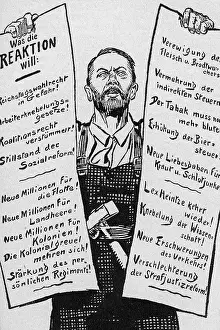 Was die
REAKTION
Will:
Reichstagswahlrecht
in Gefahr!
Arbeiterknebelungs-
gesetze!
Koalitionsrecht
verstümmer!
Stillstand der
Sozialreform!
Neue Millionen für
die Flotte!
Neue Millionen für
Landheere!
Neue Millionen für
Kolonien!
Die Kolonialgreuel
mehren sich!
Stärkung des per-
sönlichen Regiments!
Verewigung des
Fleisch u. Brodtwuchers
Vermehrung der
indirekten Steuern!
Der Tabak muss noch
mehr bluten!
Erhöhung der Bier-
steuer!
Neue Liebesgaben für
Kraut u. Schlotjunker
Lex Heintze kehrt
wieder!
Knebelung der Wissen-
schaft!
Neue Erschwerungen
des Verkehrs!
Verschlechterung
der Strafjustizreform!